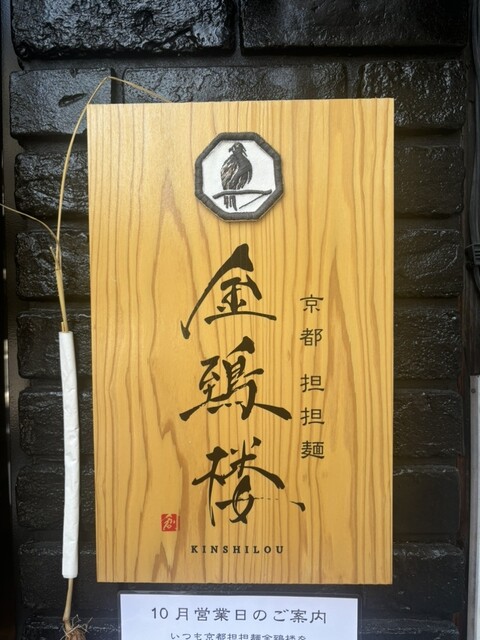 京都 担担麺
金鵄楼
KINSHILOU
10月営業日のご案内
いつも京都担担麺金鵄楼を